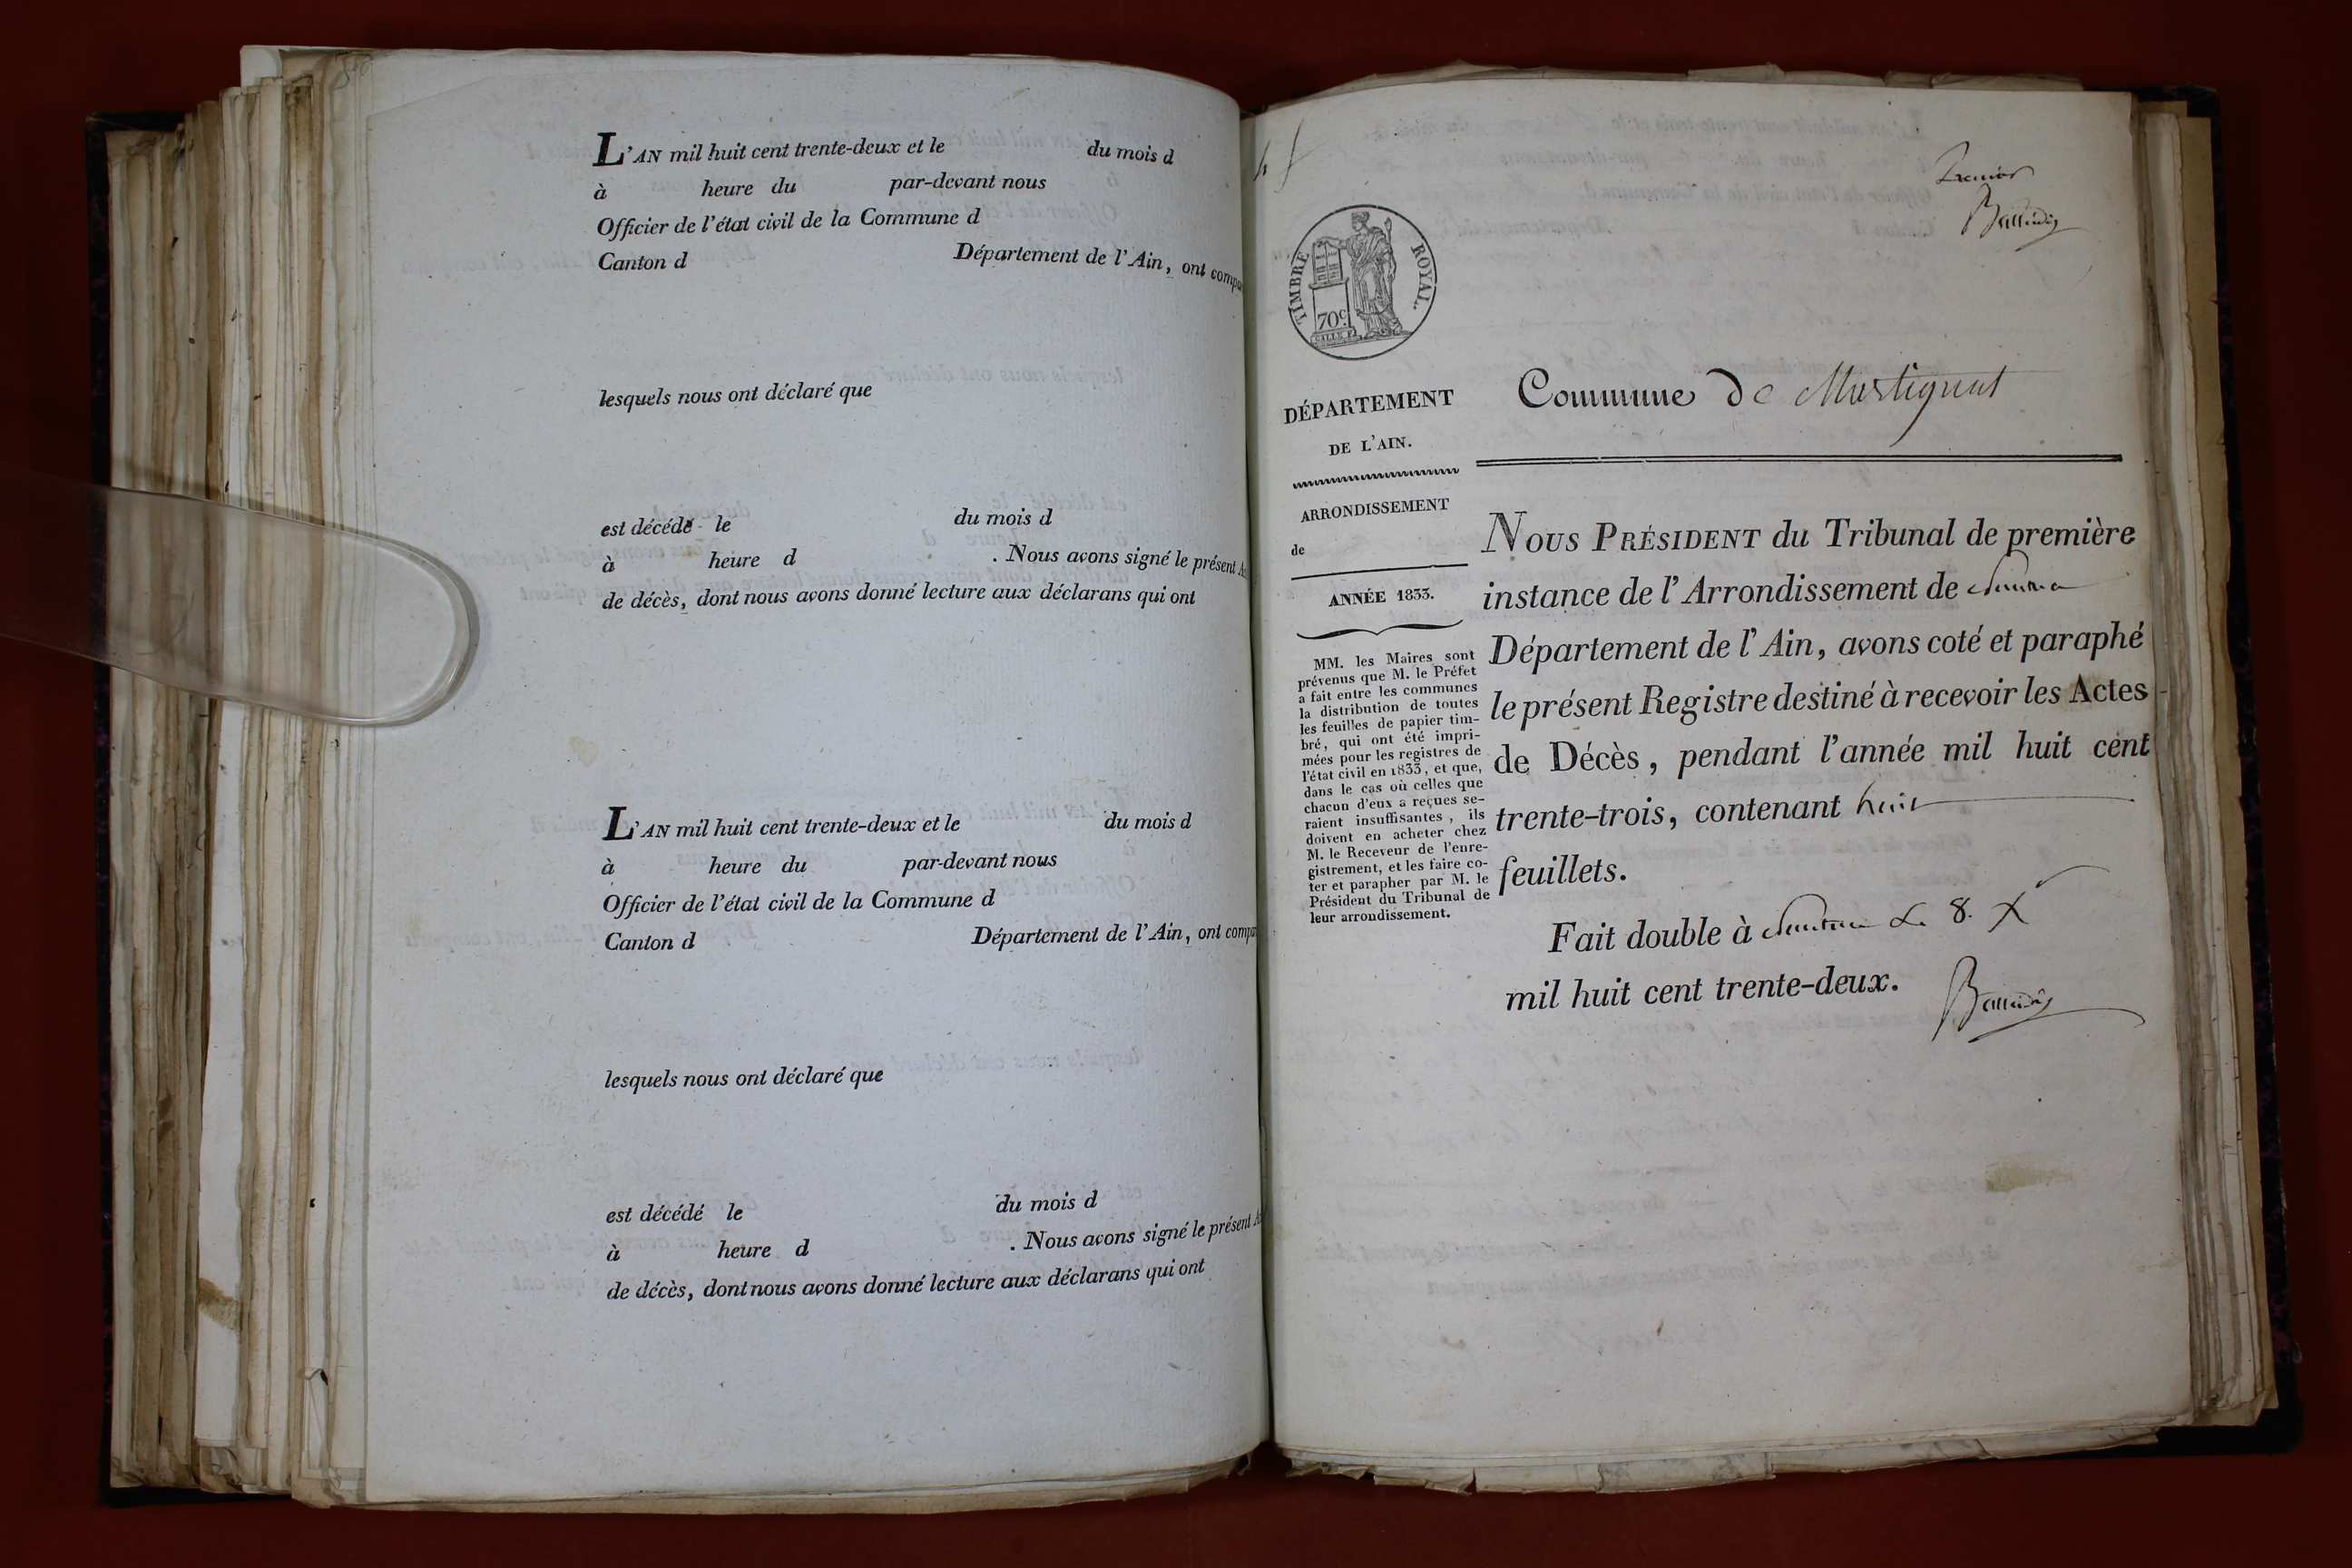 L'AN mil huit cent trente-deux et le du mois d
à heure du par-devant nous
Officier de l'état civil de la Commune d
Canton d Département de l'Ain, ont compa
lesquels nous ont déclaré que
est décédé le du mois d
à heure d . Nous avons signé le présent A
de décès, dont nous avons donné lecture aux déclarans qui ont
L'AN mil huit cent trente-deux et le du mois d
à heure du par-devant nous
Officier de l'état civil de la Commune d
Canton d Département de l'Ain, ont compa
lesquels nous ont déclaré que
est décédé le du mois d
à heure d . Nous avons signé le présent A
de décès, dont nous avons donné lecture aux déclarans qui ont
Premier
TIMBRE ROYAL.
70c.
DÉPARTEMENT
DE L'AIN.
ARRONDISSEMENT
de
ANNÉE 1833.
MM. les Maires sont
prévenus que M. le Préfet
a fait entre les communes
la distribution de toutes
les feuilles de papier tim-
bré, qui ont été impri-
mées pour les registres de
l'état civil en 1833, et que,
dans le cas où celles que
chacun d'eux a reçues se-
raient insuffisantes, ils
doivent en acheter chez
M. le Receveur de l'enre-
gistrement, et les faire co-
ter et parapher par M. le
Président du Tribunal de
leur arrondissement.
Commune de Martignat
NOUS PRÉSIDENT du Tribunal de première
instance de l'Arrondissement de Nantua
Département de l'Ain, avons coté et paraphé
le présent Registre destiné à recevoir les Actes
de Décès, pendant l'année mil huit cent
trente-trois, contenant huit
feuillets.
Fait double à Nantua le 8. X
mil huit cent trente-deux.